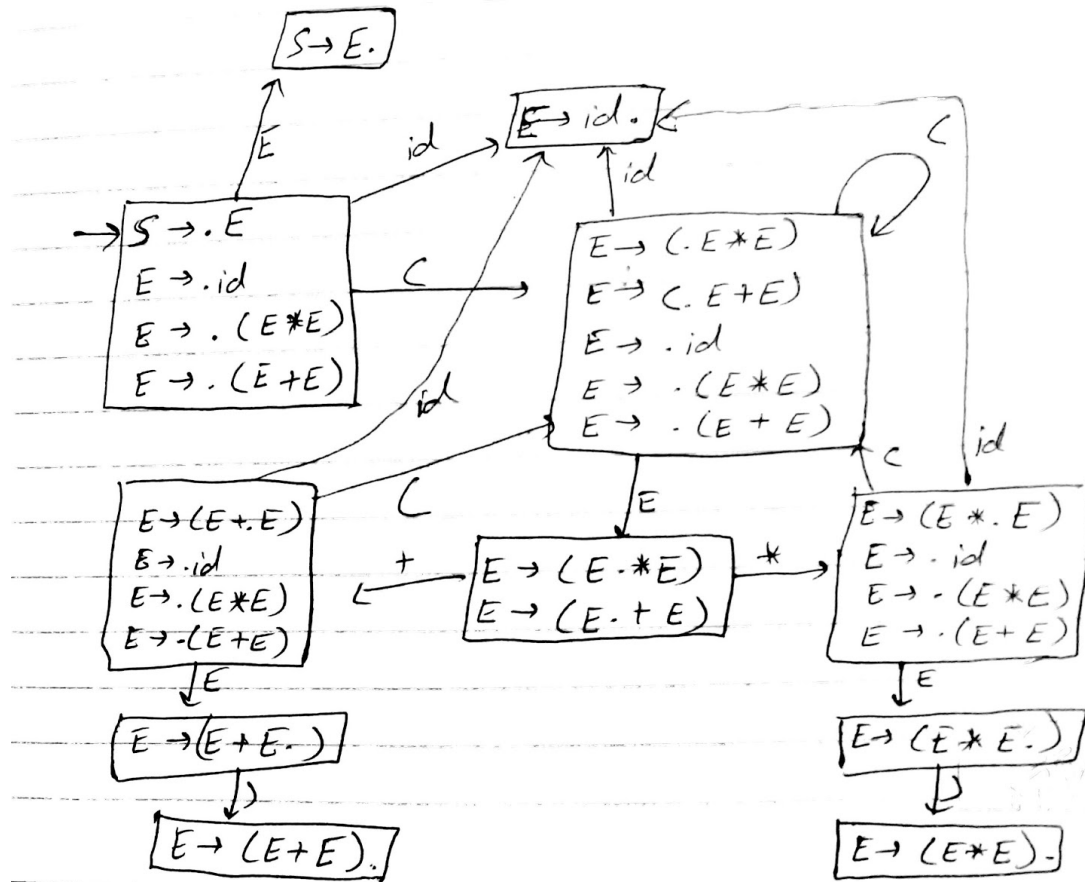 S → E.
E
id
E → id.
C
id
S → .E
E → .id
E → .(E*E)
E → .(E+E)
C
E → (.E*E)
E → (.E+E)
E → .id
E → .(E*E)
E → .(E+E)
id
C
C
id
E
E → (E+.E)
E → .id
E → .(E*E)
E → .(E+E)
+
E → (E.*E)
E → (E.+E)
*
E → (E*.E)
E → .id
E → .(E*E)
E → .(E+E)
E
E
E → (E+E.)
E → (E*E.)
)
)
E → (E+E).
E → (E*E).